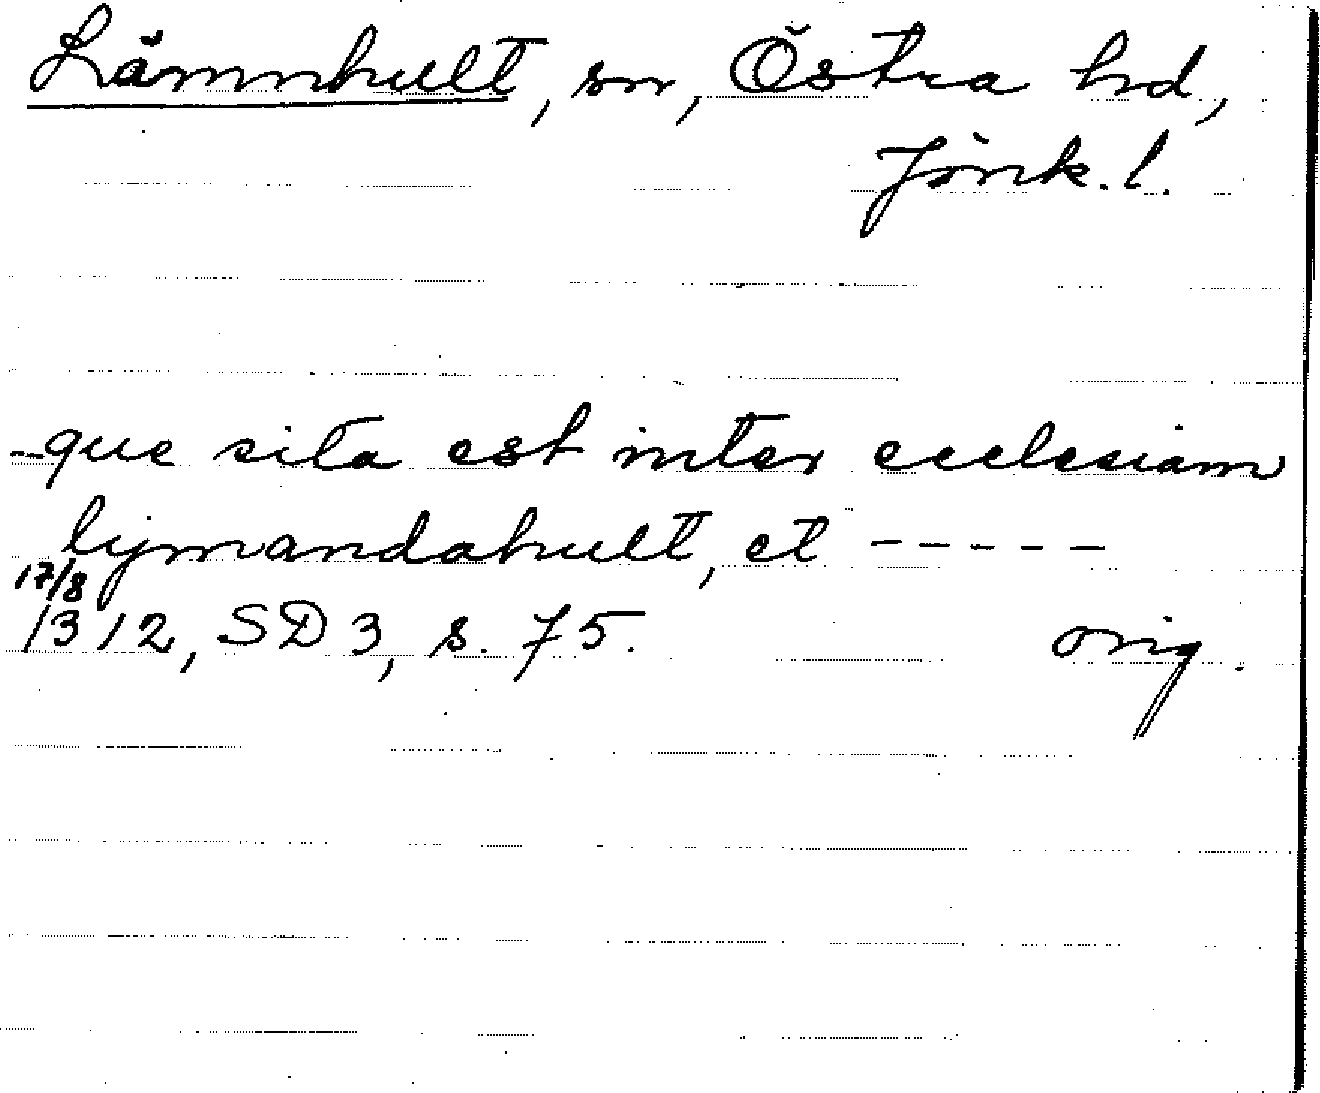 Lämnhult, sn, Östra hd,
Jönk. l.
- que sita est inter ecclesiam
lymandahult, et - - - - -
17/8
1312, SD 3, s. 75. orig.